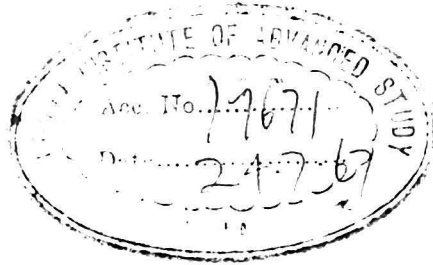 INSTITUTE OF ADVANCED STUDY
Acc. No. 17671
Date 24.7.67